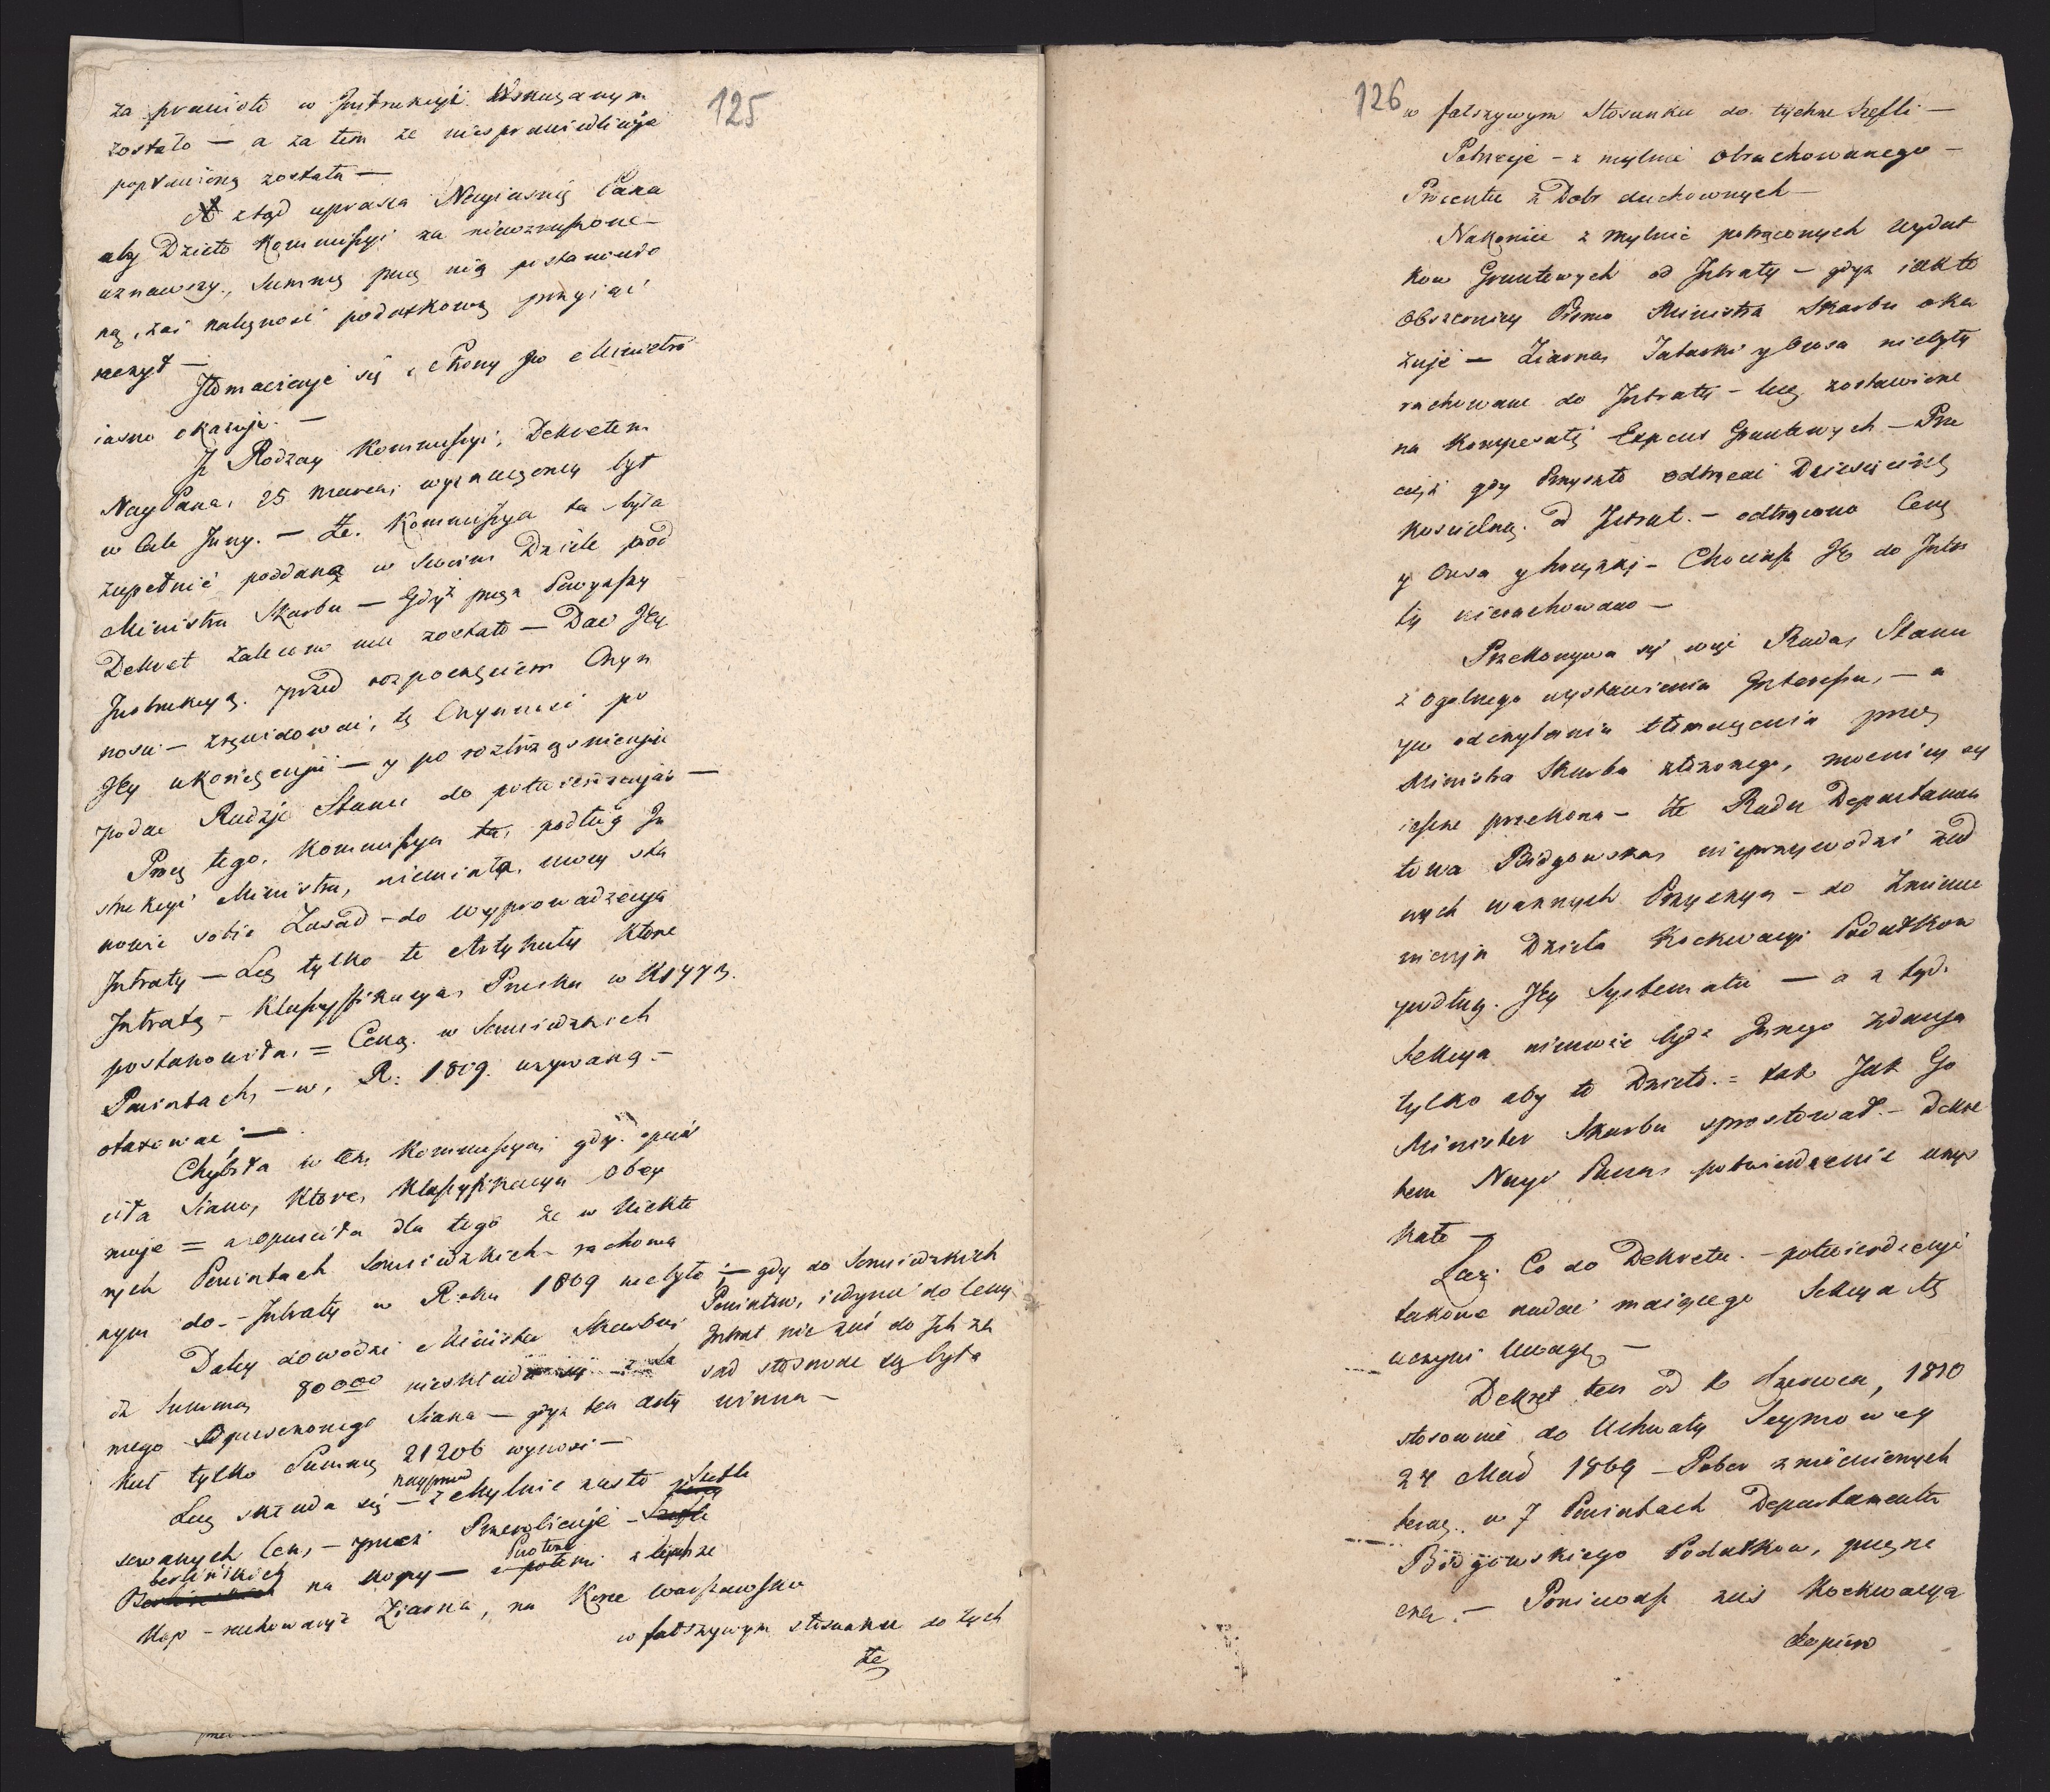 125
za prawidło w Instrukcyi wskazanym
zostało — a za tem ze niesprawiedliwie
poprawioną została —
A ztąd uprasza Nayiasnię Pana
aby Dzieło Kommissyi za niewzruszone —
uznawszy, Summę przez nię postanowio
ną, zaś należność podatkową przyiąć
raczył —
Tłomaczenje się z strony JW Ministra
iasno okazuje. —
Iż Rodzay Kommissyi, Dekretem
Nay Pana, 25 Marca, wyznaczoney był
w Cale Inny. — Że Kommissya ta była
zupełnie poddaną w Swoim Dziele pod
Ministra Skarbu — Gdyż przez Powyższy
Dekret zalecono mu zostało — Dać Jey
Instrukcyą przed rozpoczęciem Czyn
nosci — zrewidować, tę Czynnosci po
Jey ukończenju — y po roztrząsnienju
podac Radzje Stanu do potwierdzenja —
Procz tego, Kommissya ta, podług In
strukcyi Ministra, niemiała mocy sta
nowic sobie Zasad — do wyprowadzenja
Intraty — Lecz tylko te Artykuły które
Intratę — Klassyfikacya Pruska w R 1773
postanowiła, = Ceną w Sąsiedzkich
Powiatach, — w, R: 1809. używaną —
otaxować, —
Chybiła w tem Kommissya, gdy opuś
ciła Siano, które, Klassyfikacya Obey
muje = a opusciła dla tego że w niektó
rych Powiatach Sąsiedzkich rachowa
nym do — Intraty w Roku 1809 niebyło; — gdy do Sąsiedzkich
Powiatow, iedynie do Ceny
Intrat nie zaś do Ich za
sad stosowac się była
winna —
Daley dowodzi Minister Skarbu
iz Summa 80000 nieskłada się — z sa
mego Opuszczonego Siana — gdyz ten arty
kuł tylko Summę 21206 wynosi —
Lecz składa się nayprzod — z Mylnie zasto
sowanych Cen, — przez Przewoliczenje — Szefle
berlinskich na kopy — a potem z tychże
Kop — rachowanje Ziarna, na Korce warszawskie
w fałszywym stosunku do tych
że
126
w fałszywym Stosunku do tychze Szefli —
Potrzecje — z mylnie obrachowanego —
Procentu z Dobr duchownych —
Nakoniec z mylnie potrąconych wydat
kow Gruntowych od Intraty — gdyz iak to
obszerniey Pismo Ministra Skarbu oka
zuje — Ziarna, Tatarki y Owsa niebyły
rachowane do Intraty — lecz zostawione
na Kompesatę Expens Gruntowych — Prze
cięz gdy Przyszło odtrącać Dziesięcinę
Koscielną od Intrat. — odtrącono Cenę
y Owsa y Hreczki — Chociasz Jch do Intra
ty nierachowano —
Przekonywa się więc Rada, Stanu
z ogolnego wystawienia Interessu, — a
po odczytaniu tłómaczenia przez
Ministra Skarbu złożonego, mocniey się
ieszcze przekona — że Rada Departamen
towa Bidgowska, nieprzywodzi żad
nych waznych Przyczyn — do Zmienie
nienja Dzieła Rockwacyi Podatkow
podług Jey Systematu — a z tąd
Sekcya niemoże bydź Innego zdanja
tylko aby to Dzieło = tak Jak Go
Minister Skarbu sprostował — Dekre
tem Nayo Pana potwierdzenie uzys
kało —
Lecz Co do Dekretu — potwierdzenje
takowe nadać maiącego Sekcya tę
uczyni Uwagę —
Dekret ten od 1o Czerwca, 1810
stosownie do Uchwały Seymowey
24 Mar 1809 — Pobor zmiecionych
teraz w 7 Powiatach Departamentu
Bidgowskiego Podatkow, przezna
cza. — Poniewasz zas Rockwacya
dopiero